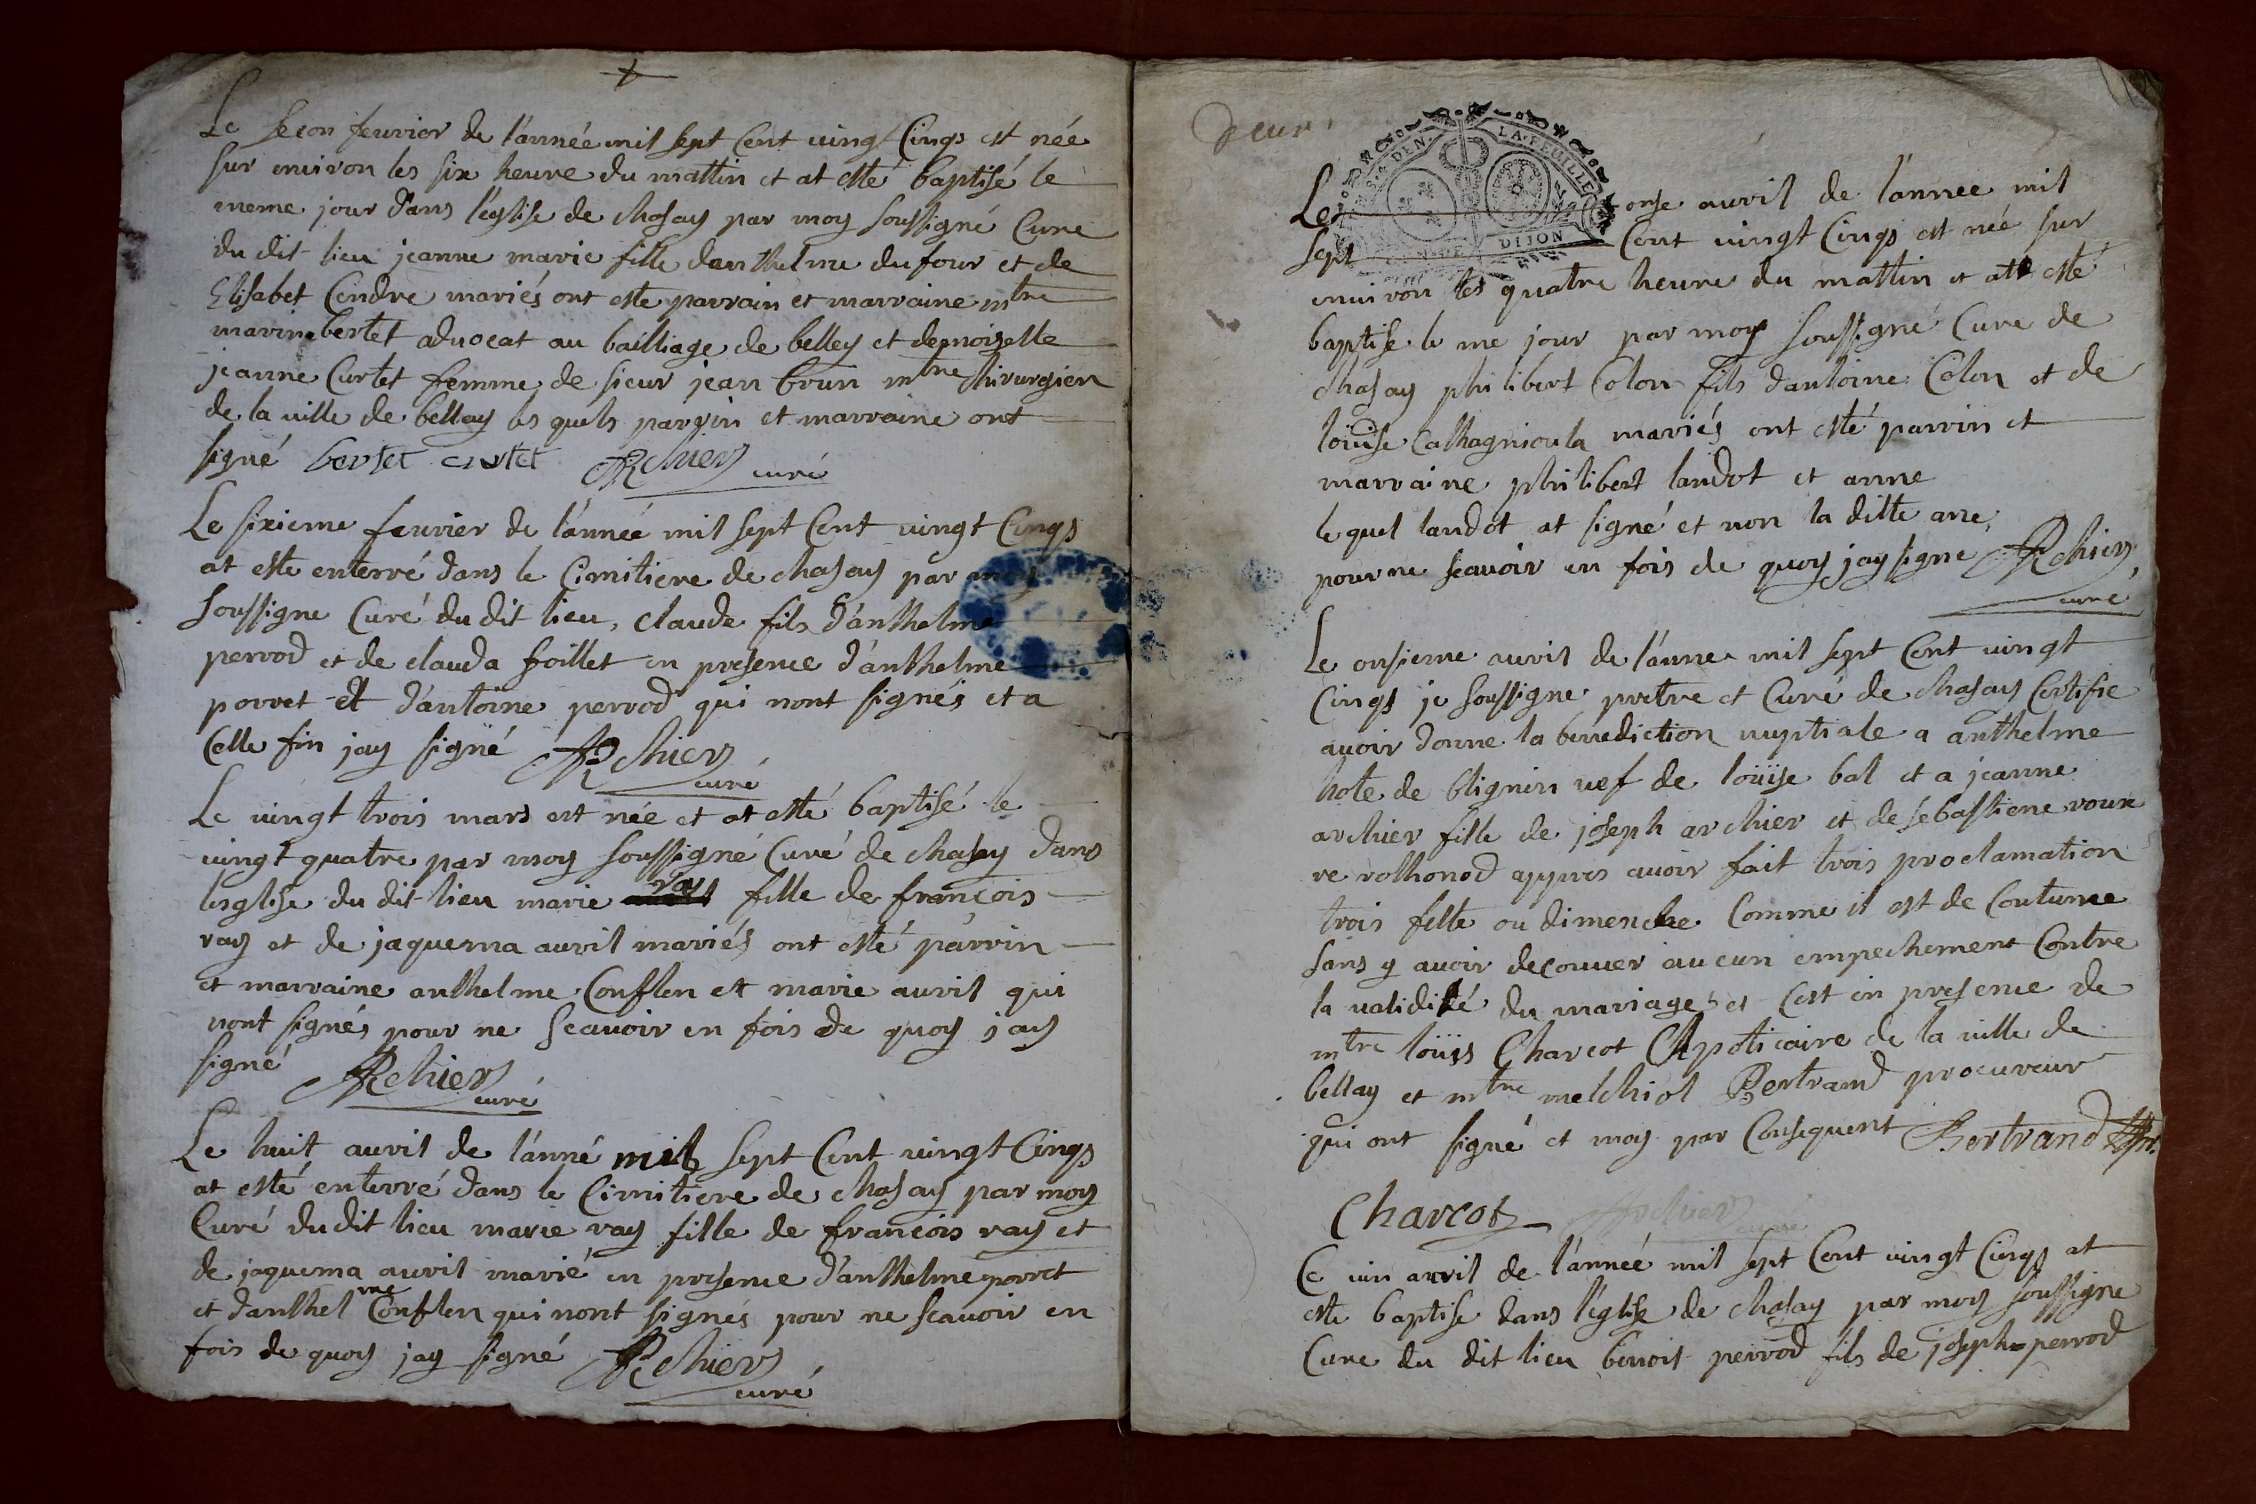 Le secon feuvrier de l'année mil sept Cent ving Cinqs est née
sur environ les six heure du mattin et at esté baptisé le
meme jour dans l'église de chasay par moy soussigné Cure
du dit lieu jeanne marie fille danthelme dufour et de
Elisabet Cendre mariés ont este parrain et marraine mtre
marin bertet advocat au bailliage de belley et demoiselle
jeanne Curtet femme de sieur jean brun mtre chirurgien
de la ville de bellay les quels parrin et marraine ont
signé bertet curtet Rchier curé
Le sixieme feuvrier de l'année mil sept Cent vingt Cinqs
at este enterré dans le Cimitiere de chasay par moy
soussigne Curé du dit lieu, claude fils d'anthelme
perrod et de clauda foillet en presence d'anthelme
porret et d'antoine perrod qui nont signés et a
Celle fin jay signé Rchier
curé
Le vingt trois mars est née et at esté baptisé le
vingt quatre par moy soussigné Curé de chasay dans
lesglise du dit lieu marie ray fille de françois
ray et de jaquema auvril mariés ont esté parrin
et marraine anthelme Conflen et marie auvril qui
nont signés pour ne scavoir en fois de quoy jay
signé Rchier
curé
Le huit auvril de l'anné mil sept Cent vingt Cinqs
at esté enterré dans le Cimitiere de chasay par moy
Curé du dit lieu marie ray fille de françois ray et
de jaquema auvril marié en presence d'anthelme porret
et danthelme Conflen qui nont signés pour ne scavoir en
fois de quoy jay signé Rchier
curé
deux
DEN. LA FEUILLE
DIJON
Le onse auvril de l'année mil
sept Cent vingt Cinqs est née sur
environ les quatre heure du mattin et at esté
baptise le me jour par moy soussigné Cure de
chasay philibert Colon fils dantoine Colon et de
loüise Cathagnioula mariés ont esté parrin et
marraine philibert landot et anne
le quel landot at signé et non la ditte ane
pour ne scavoir en fois de quoy jay signe Rchier
curé
Le onsieme auvril de l'anne mil sept Cent vingt
Cinqs je soussigne pretre et Curé de chasay Certifie
avoir donne la benediction nuptiale a anthelme
hote de blignin vef de loüise bal et a jeanne
archier fille de joseph archier et de sebastiene roux
re rothonod appres avoir fait trois proclamation
trois feste ou dimenche Comme il est de Coutume
sans y avoir decouver aucun empechement Contre
la validité du mariage et Cest en presence de
mtre loüis Charcot Apoticaire de la ville de
bellay et mtre melchiol Bertrand procureur
qui ont signé et moy par Consequent Bertrand
Charcot Rchier curé
Ce vin avril de l'année mil sept Cent vingt Cinqs at
este baptise dans l'église de chasay par moy soussigne
Cure du dit lieu benoit perrod fils de joseph perrod